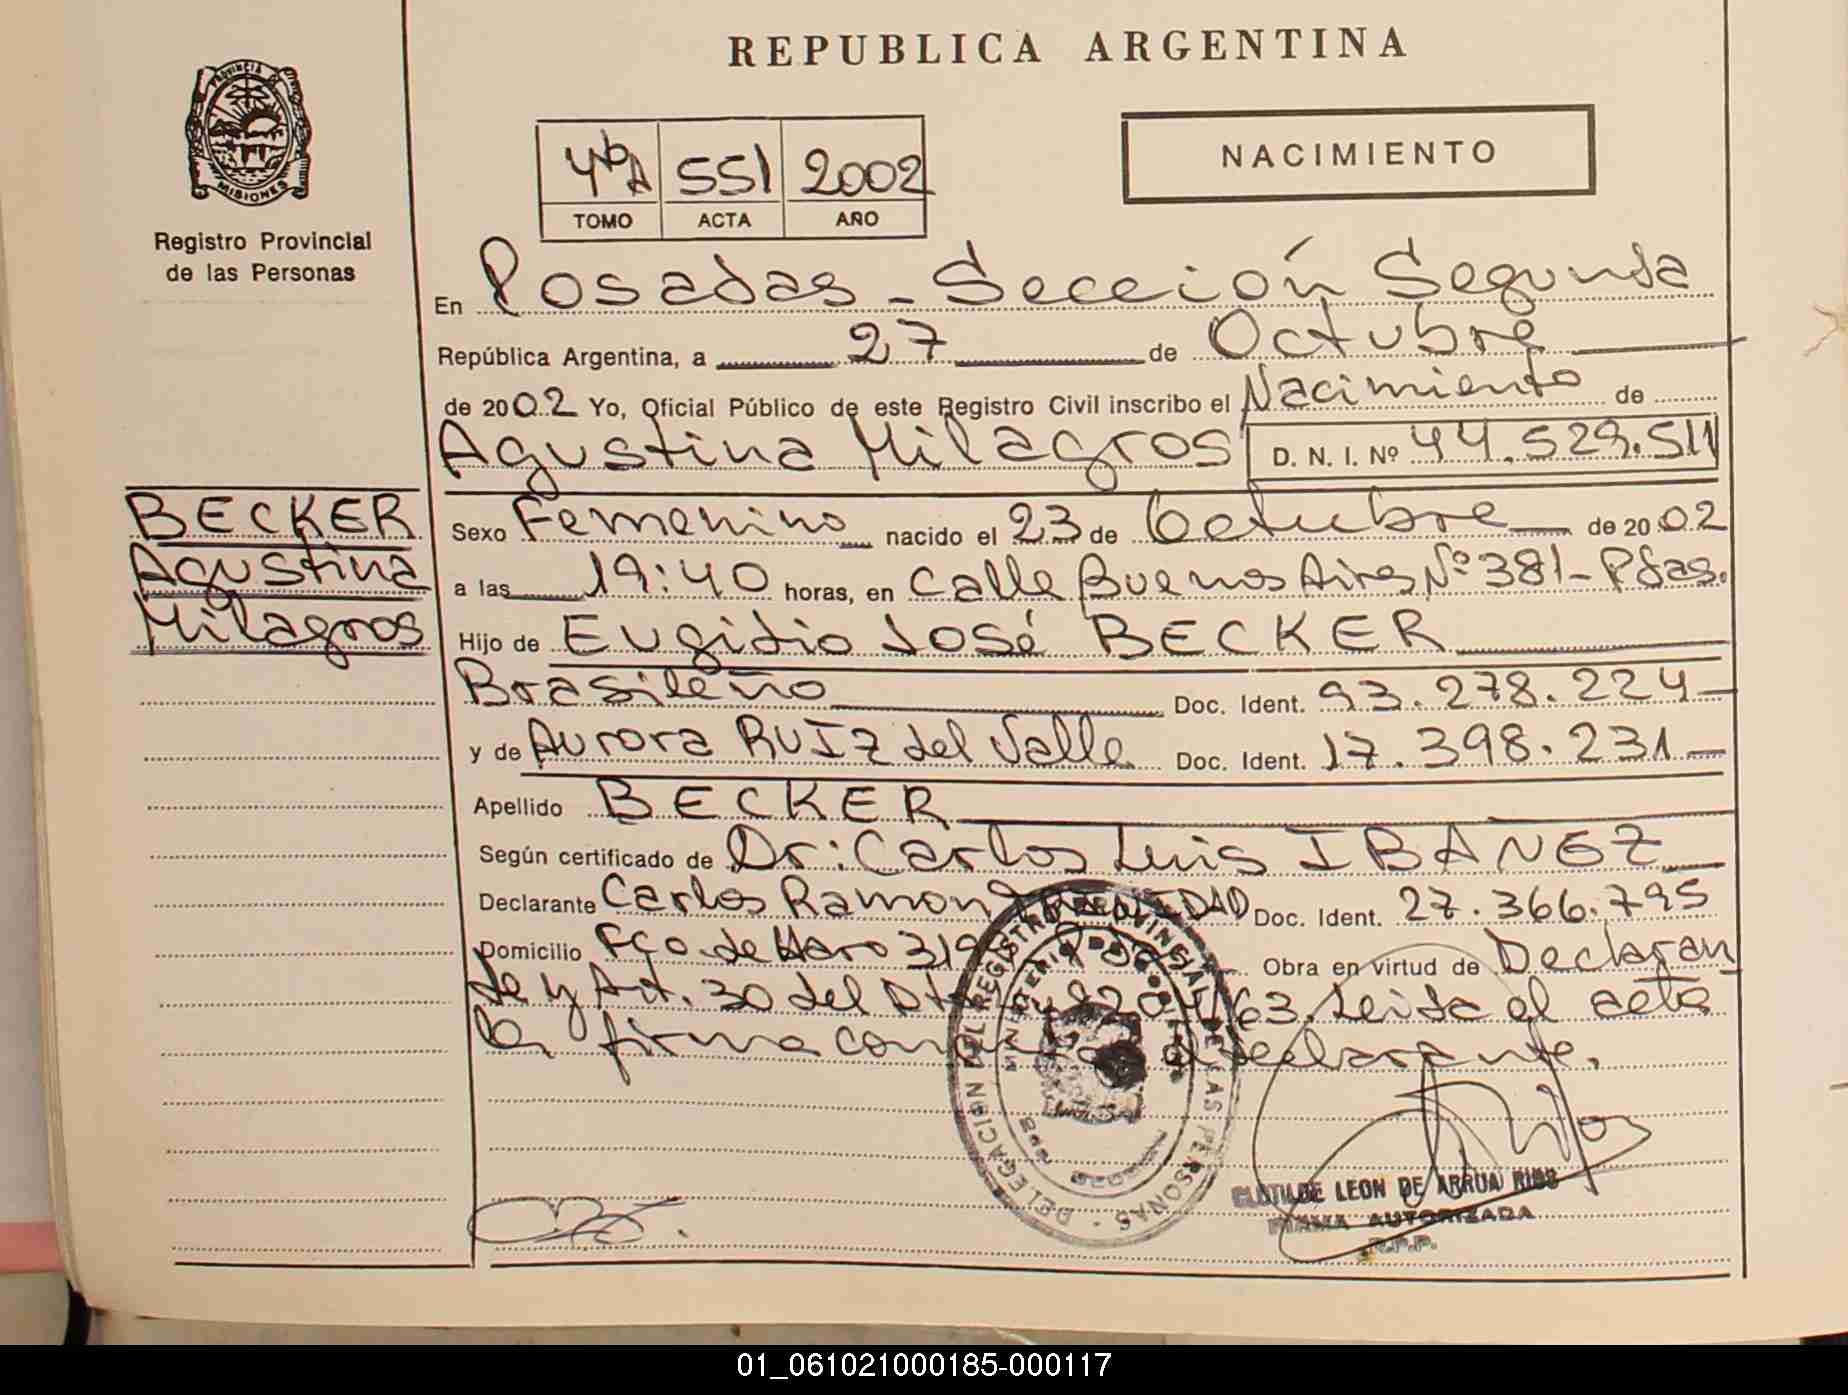 REPUBLICA ARGENTINA
PROVINCIA DE MISIONES
Registro Provincial
de las Personas
4ºA 551 2002
TOMO ACTA AÑO
NACIMIENTO
En Posadas - Sección Segunda
República Argentina, a 27 de Octubre
de 2002 Yo, Oficial Público de este Registro Civil inscribo el Nacimiento de
Agustina Milagros D. N. I. Nº 44.529.511
BECKER
Agustina
Milagros
Sexo Femenino nacido el 23 de Octubre de 2002
a las 19:40 horas, en Calle Buenos Aires Nº 381 - Pdas.
Hijo de Eugidio José BECKER
Brasileño Doc. Ident. 93.278.224
y de Aurora RUIZ del Valle Doc. Ident. 17.398.231
Apellido BECKER
Según certificado de Dr: Carlos Luis IBAÑEZ
Declarante Carlos Ramon Doc. Ident. 27.366.795
Domicilio Fco. de Haro 319 Obra en virtud de Declaran
te y Art. 30 del 63. Leida el acta
la firma el declarante.
DELEGACION DEL REGISTRO PROVINCIAL DE LAS PERSONAS
CLOTILDE LEON DE ARRUA RIOS
FIRMA AUTORIZADA
R.P.P.
01_061021000185-000117